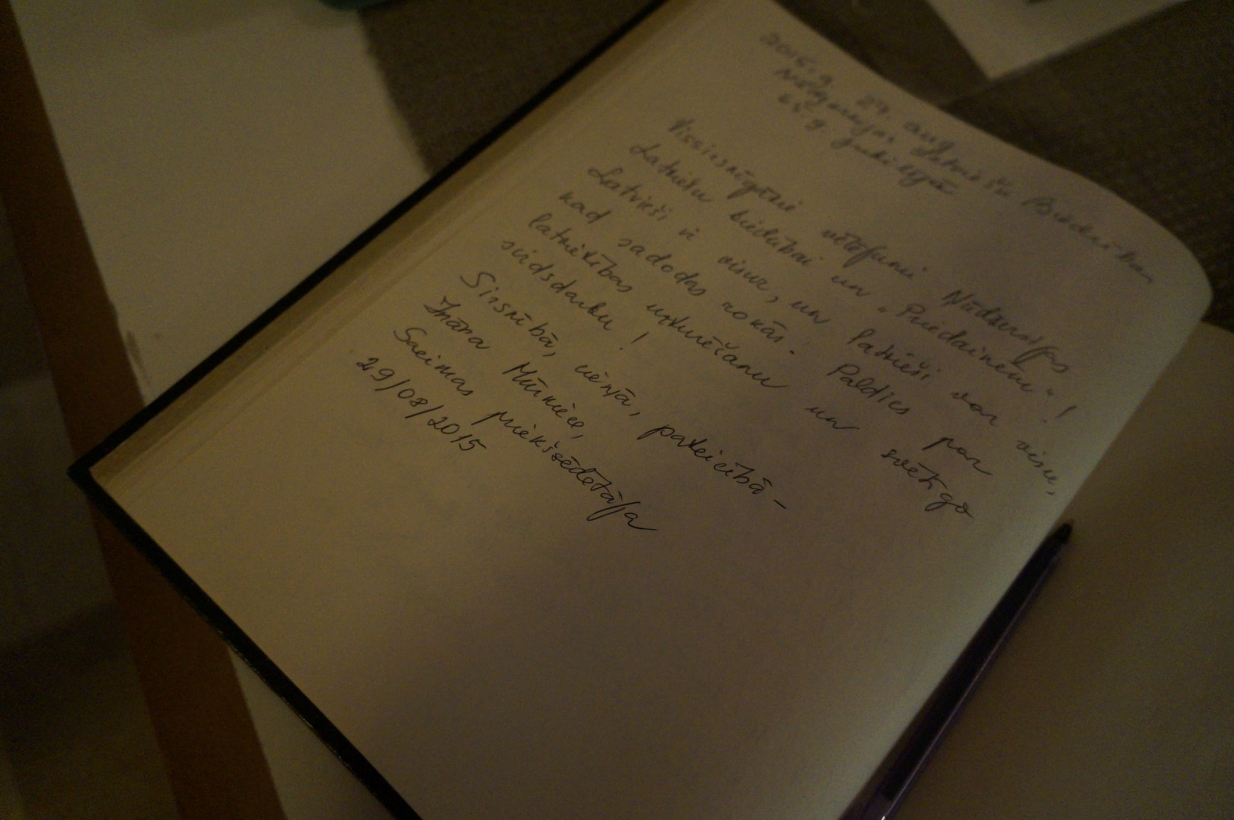 2015.g. 29. aug
Ņūdžersijas Latviešu Biedrības
65 g. jubilejā
Vissirsnīgākie vēlējumi Ņūdžersijas
latviešu biedrībai un "Priedainem"!
Latvieši ir visur, un latvieši var visu,
kad sadodas rokās. Paldies par
latvietības uzturēšanu un svētīgo
sirdsdarbu!
Sirsnībā, cieņā, pateicībā –
Ināra Mūrniece,
Saeimas priekšsēdētāja
29/08/2015